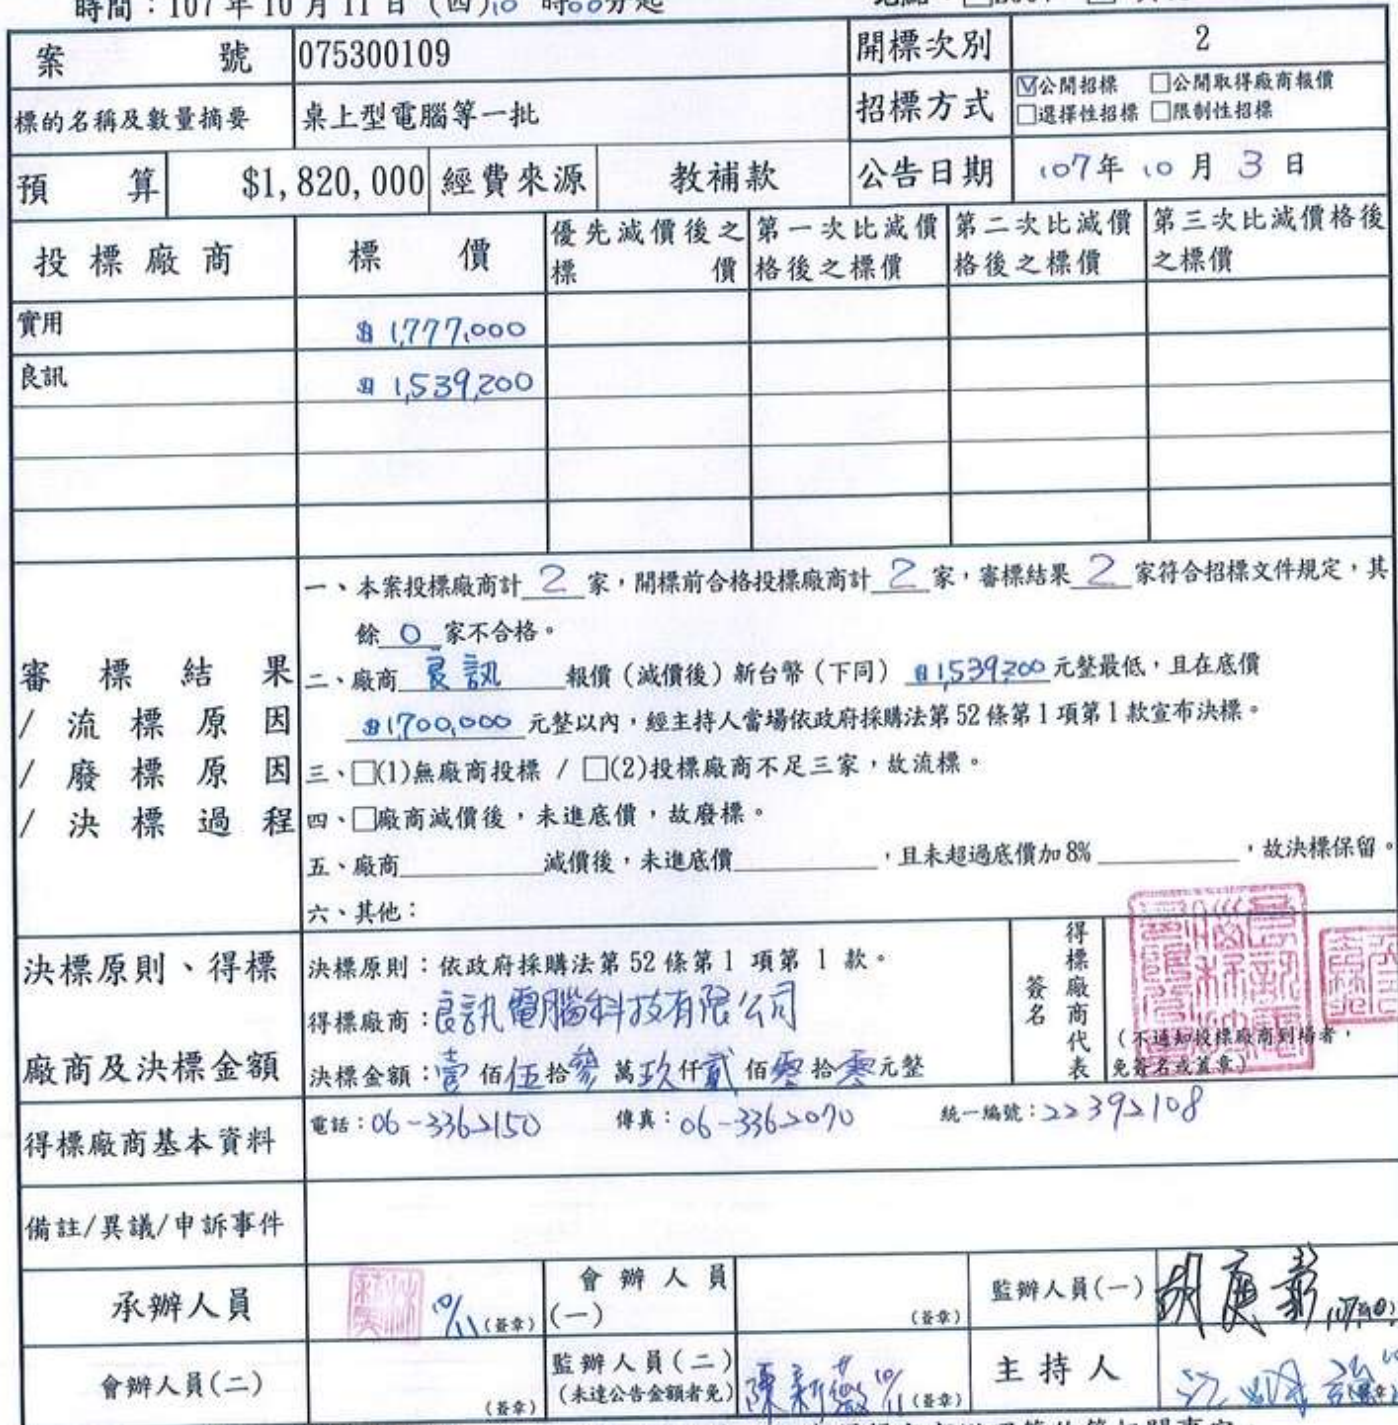 時間：107年10月11日(四)10時00分起
案號 075300109 開標次別 2
標的名稱及數量摘要 桌上型電腦等一批 招標方式 ☑公開招標 □公開取得廠商報價
□選擇性招標 □限制性招標
預算 $1,820,000 經費來源 教補款 公告日期 107年10月3日
投標廠商 標價 優先減價後之標價 第一次比減價格後之標價 第二次比減價格後之標價 第三次比減價格後之標價
實用 $1,777,000
良訊 $1,539,200
審標結果
/流標原因
/廢標原因
/決標過程
一、本案投標廠商計 2 家，開標前合格投標廠商計 2 家，審標結果 2 家符合招標文件規定，其
餘 0 家不合格。
二、廠商 良訊 報價(減價後)新台幣(下同) $1,539,200 元整最低，且在底價
$1,700,000 元整以內，經主持人當場依政府採購法第52條第1項第1款宣布決標。
三、□(1)無廠商投標 / □(2)投標廠商不足三家，故流標。
四、□廠商減價後，未進底價，故廢標。
五、廠商________減價後，未進底價________，且未超過底價加8%________，故決標保留。
六、其他：
決標原則、得標
廠商及決標金額
決標原則：依政府採購法第52條第1項第1款。
得標廠商：良訊電腦科技有限公司
決標金額：壹佰伍拾參萬玖仟貳佰零拾零元整
得標廠商代表
簽名
(不通知投標廠商到場者，
免簽名或蓋章)
得標廠商基本資料 電話：06-3362150 傳真：06-3362070 統一編號：22392108
備註/異議/申訴事件
承辦人員 10/11 (簽章) 會辦人員(一) (簽章) 監辦人員(一)
會辦人員(二) (簽章) 監辦人員(二)
(未達公告金額者免) 10/11 (簽章) 主持人